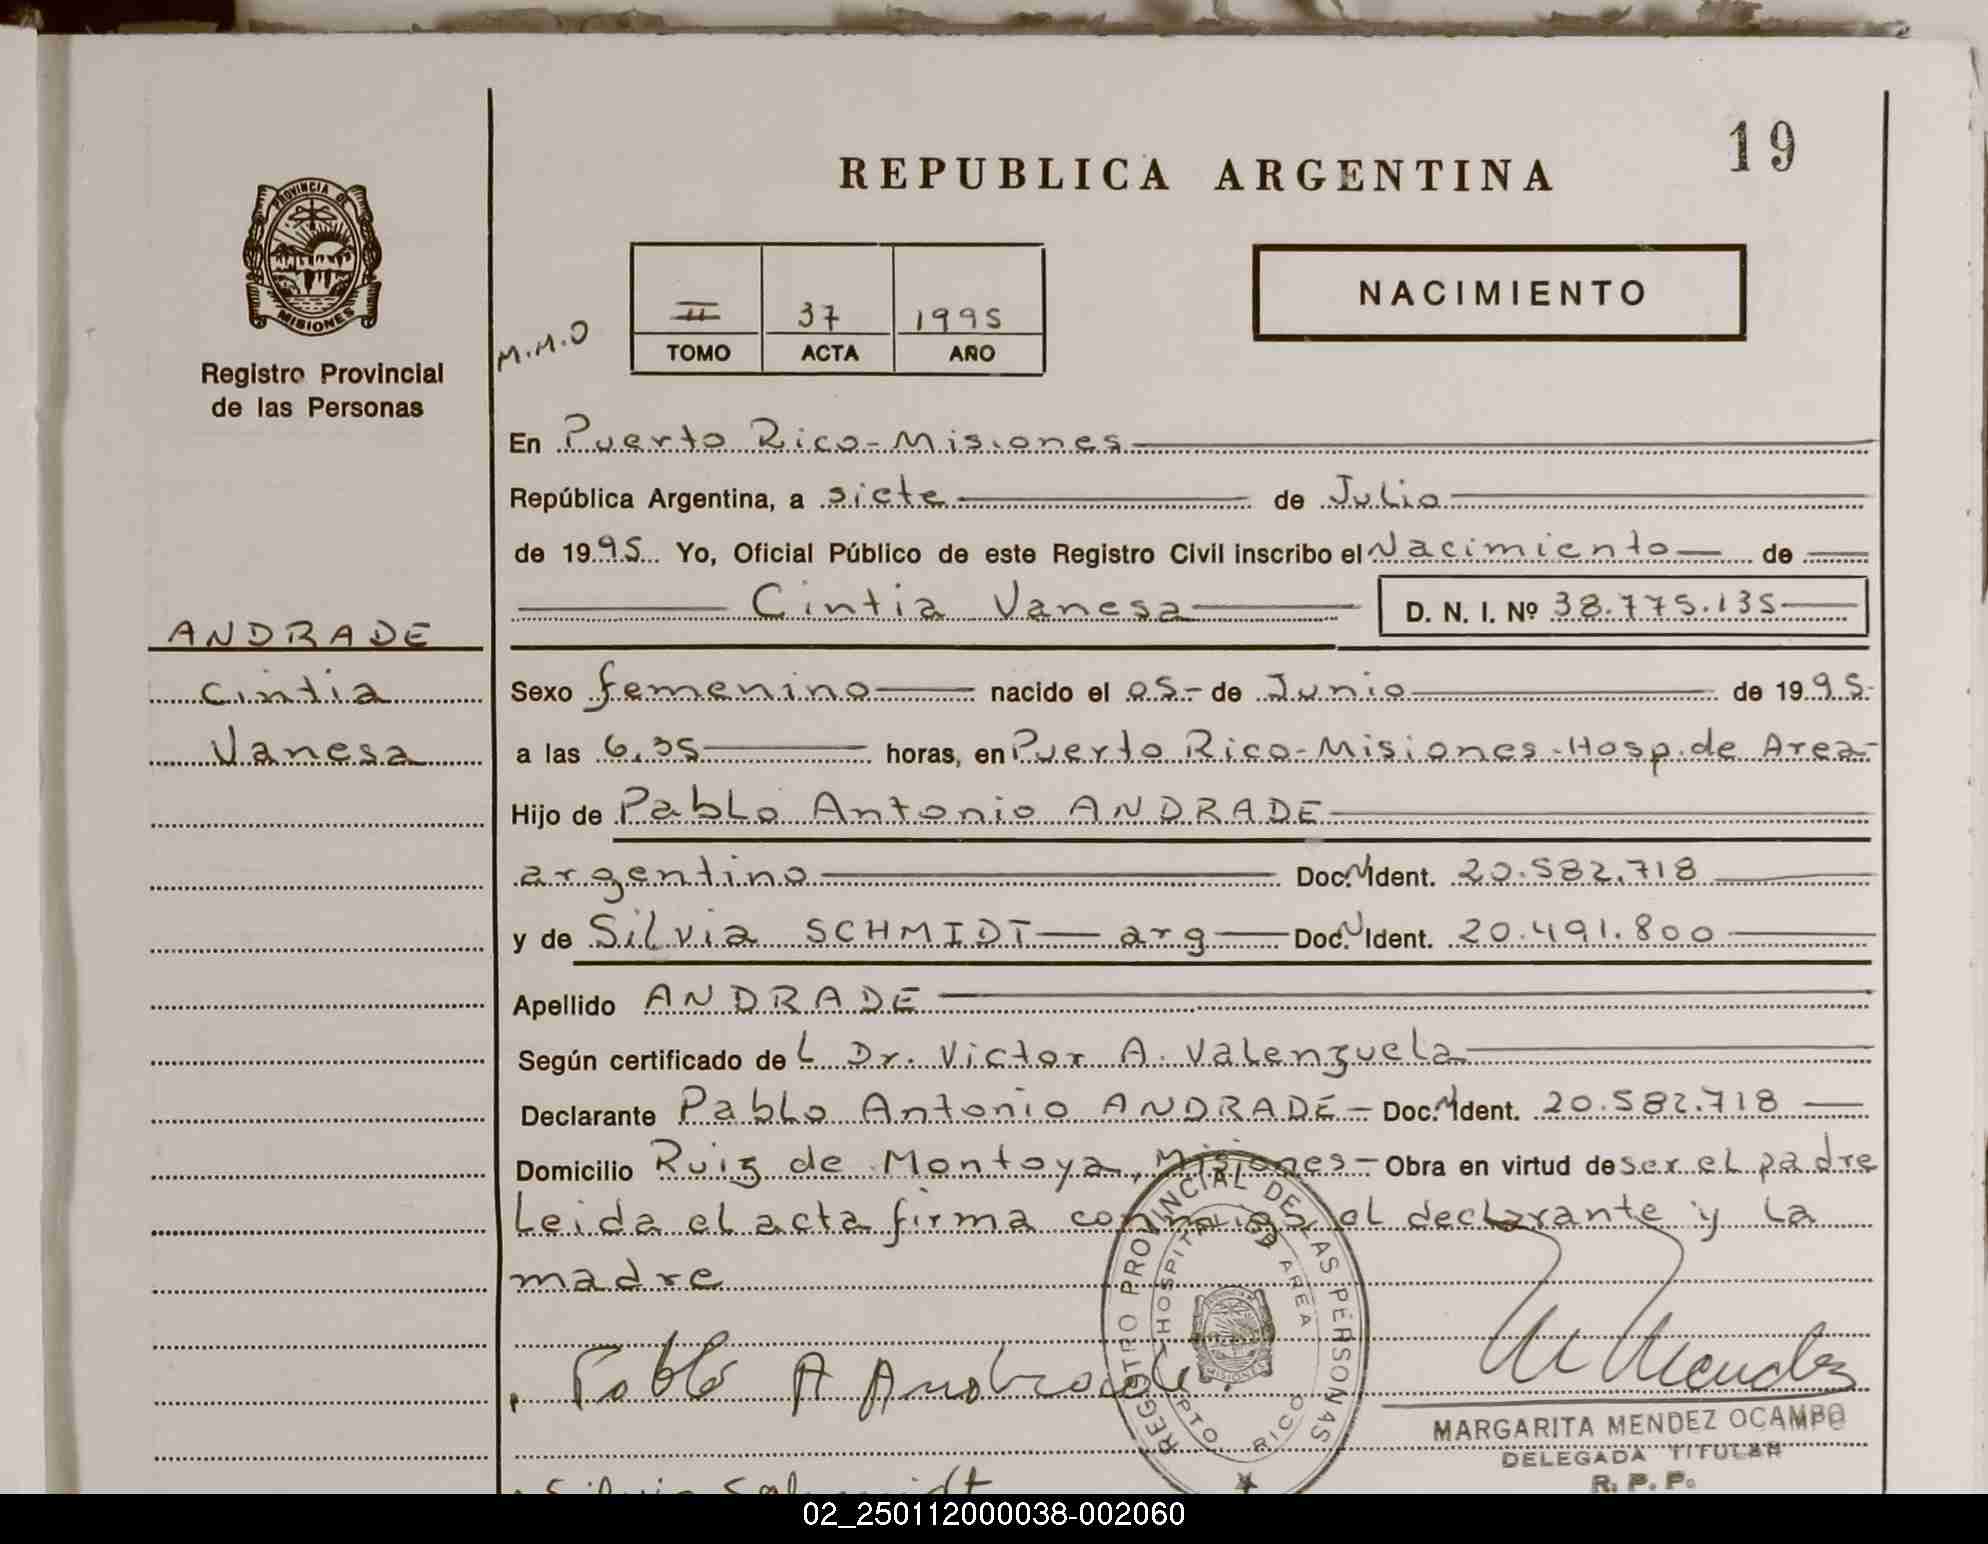 19
REPUBLICA ARGENTINA
PROVINCIA DE
MISIONES
Registro Provincial
de las Personas
NACIMIENTO
M.M.O
II 37 1995
TOMO ACTA AÑO
En Puerto Rico-Misiones
República Argentina, a siete de Julio
de 1995 Yo, Oficial Público de este Registro Civil inscribo el Nacimiento de
Cintia Vanesa D. N. I. Nº 38.775.135
ANDRADE
Cintia
Vanesa
Sexo femenino nacido el 05- de Junio de 1995-
a las 6,35 horas, en Puerto Rico-Misiones-Hosp.de Area-
Hijo de Pablo Antonio ANDRADE
argentino Doc.N Ident. 20.582.718
y de Silvia SCHMIDT arg Doc.N Ident. 20.491.800
Apellido ANDRADE
Según certificado de L Dr. Victor A. Valenzuela
Declarante Pablo Antonio ANDRADE- Doc.N Ident. 20.582.718
Domicilio Ruiz de Montoya, Misiones- Obra en virtud de ser el padre
Leida el acta firma conmigo, el declarante y la
madre
Pablo A Andrade
REGISTRO PROVINCIAL DE LAS PERSONAS
HOSPITAL DE AREA
PTO RICO
MISIONES
M Mendez
MARGARITA MENDEZ OCAMPO
DELEGADA TITULAR
R. P. P.
Silvia Schmidt
02_250112000038-002060